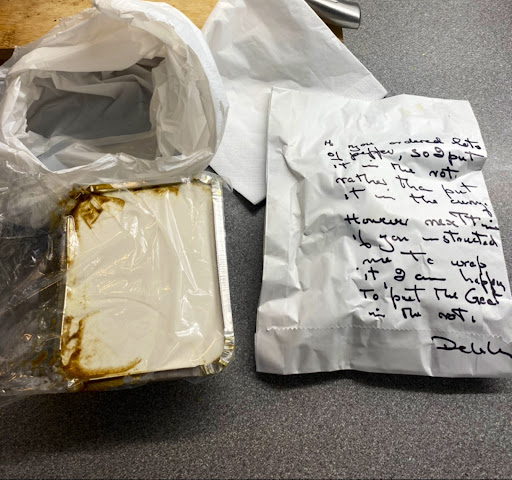 you ordered lots
of pepper, so I put
it in the
rather tha put
it in the curry
However next time
if you instructed
me to wrap
it, I am happy
to put the
in the